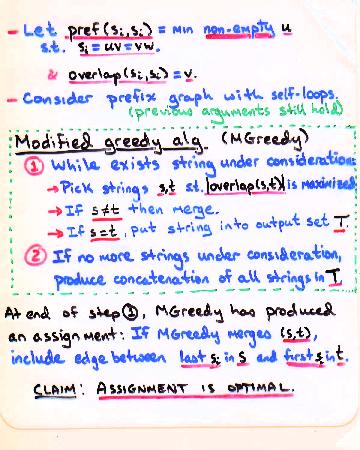 - Let pref(sᵢ,sᵢ) = min non-empty u
s.t. sᵢ = uv = vw.
& overlap(sᵢ,sᵢ) = v.
- Consider prefix graph with self-loops.
(previous arguments still hold)
Modified greedy alg. (MGreedy)
① While exists string under consideration:
→ Pick strings s,t st. |overlap(s,t)| is maximized
→ If s≠t then merge.
→ If s=t, put string into output set T.
② If no more strings under consideration,
produce concatenation of all strings in T.
At end of step ①, MGreedy has produced
an assignment: If MGreedy merges (s,t),
include edge between last sᵢ in s and first sⱼ in t.
CLAIM: ASSIGNMENT IS OPTIMAL.